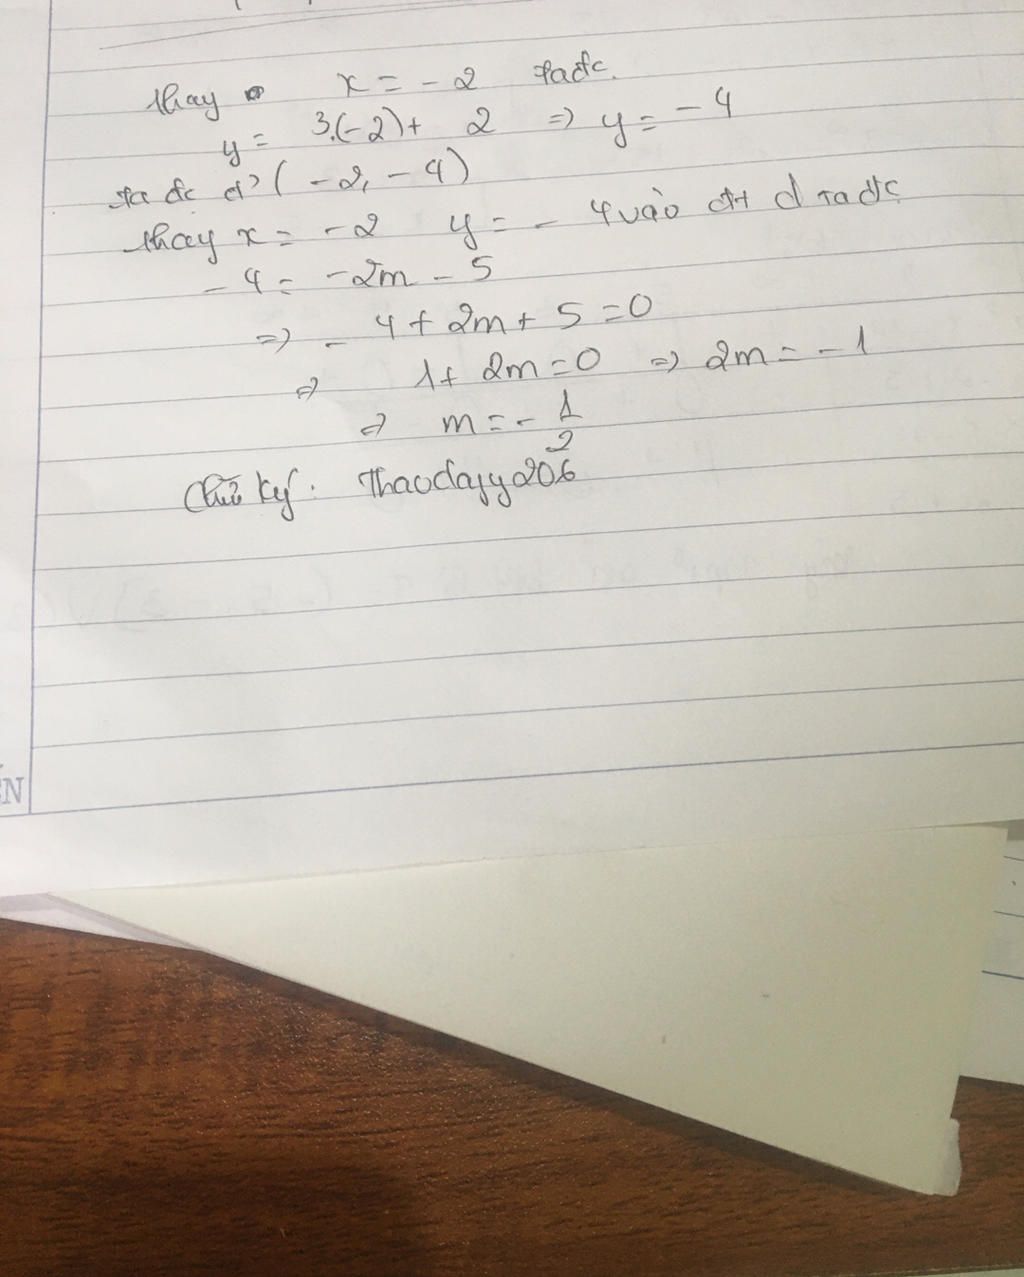 thay x = -2 ta đc.
y = 3.(-2) + 2 => y = -4
ta đc đ' (-2, -4)
thay x = -2 y = -4 vào đt d ta đc
-4 = -2m - 5
=> -4 + 2m + 5 = 0
=> 1 + 2m = 0 => 2m = -1
=> m = - 1/2
Chữ ký: Thaodajy206
ẾN